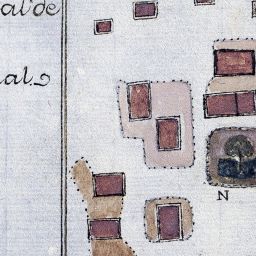 al de
al.
N